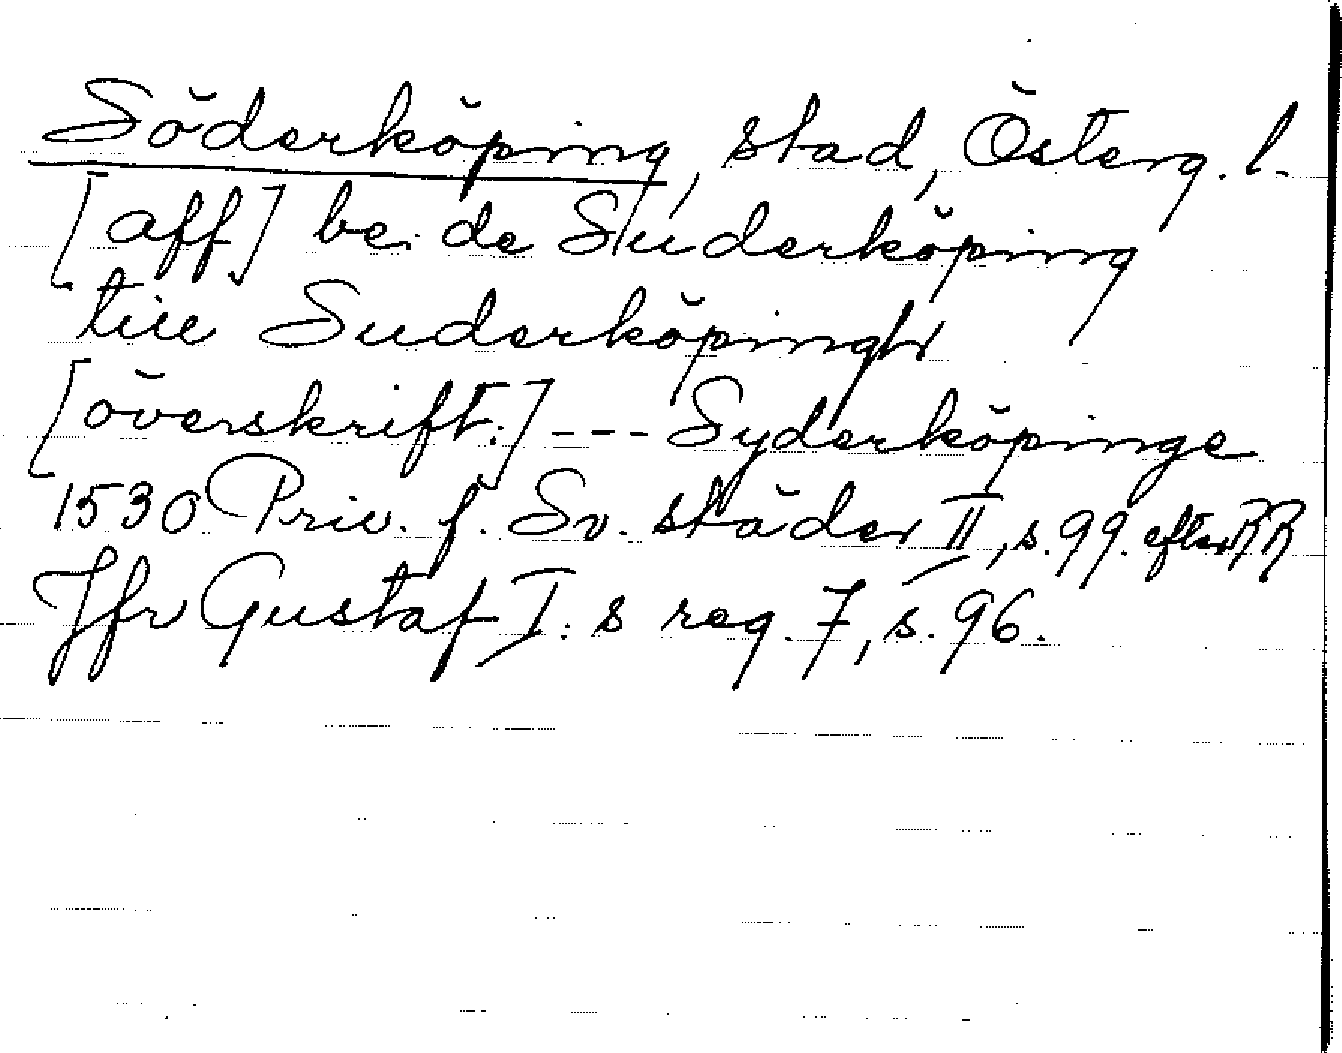 Söderköping, stad, Österg. l.
[aff] be. de Suderköping
till Suderköpingh
[överskrift:] --- Syderköpinge
1530 Priv. f. Sv. städer II, s. 99. efter RR
Jfr Gustaf I: s reg. 7, s. 96.